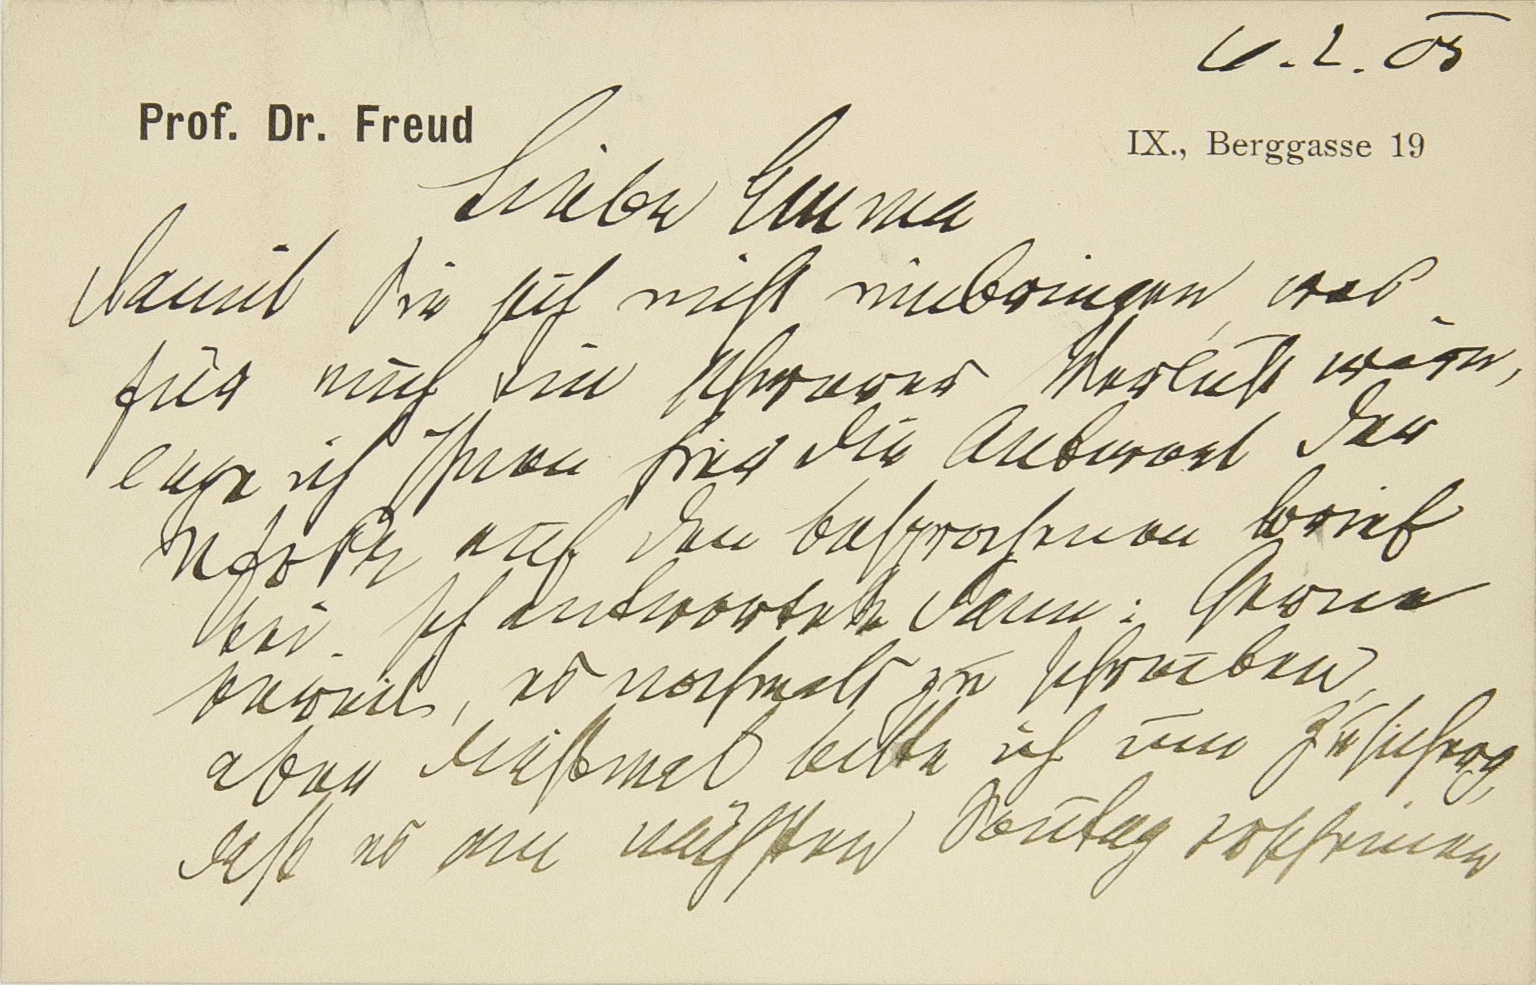 6.2.05
Prof. Dr. Freud
IX., Berggasse 19
Liebe Emma
Damit Sie sich nicht umbringen, was
für mich ein schwerer Verlust wäre,
lege ich Ihnen hier die Antwort der
NfrPr auf den besprochenen Brief
bei. Ich antwortete dann: Gerne
bereit, es nochmals zu schreiben,
aber dießmal bitte ich um Zusicherg,
daß es am nächsten Sonntag erscheinen